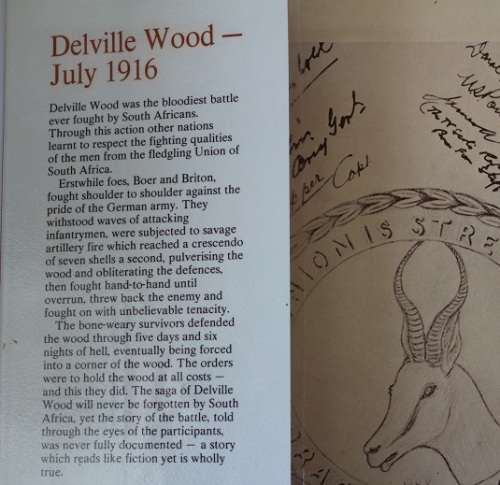 Delville Wood –
July 1916
Delville Wood was the bloodiest battle
ever fought by South Africans.
Through this action other nations
learnt to respect the fighting qualities
of the men from the fledgling Union of
South Africa.
Erstwhile foes, Boer and Briton,
fought shoulder to shoulder against the
pride of the German army. They
withstood waves of attacking
infantrymen, were subjected to savage
artillery fire which reached a crescendo
of seven shells a second, pulverising the
wood and obliterating the defences,
then fought hand-to-hand until
overrun, threw back the enemy and
fought on with unbelievable tenacity.
The bone-weary survivors defended
the wood through five days and six
nights of hell, eventually being forced
into a corner of the wood. The orders
were to hold the wood at all costs —
and this they did. The saga of Delville
Wood will never be forgotten by South
Africa, yet the story of the battle, told
through the eyes of the participants,
was never fully documented — a story
which reads like fiction yet is wholly
true.
Capt
NIONIS STRE